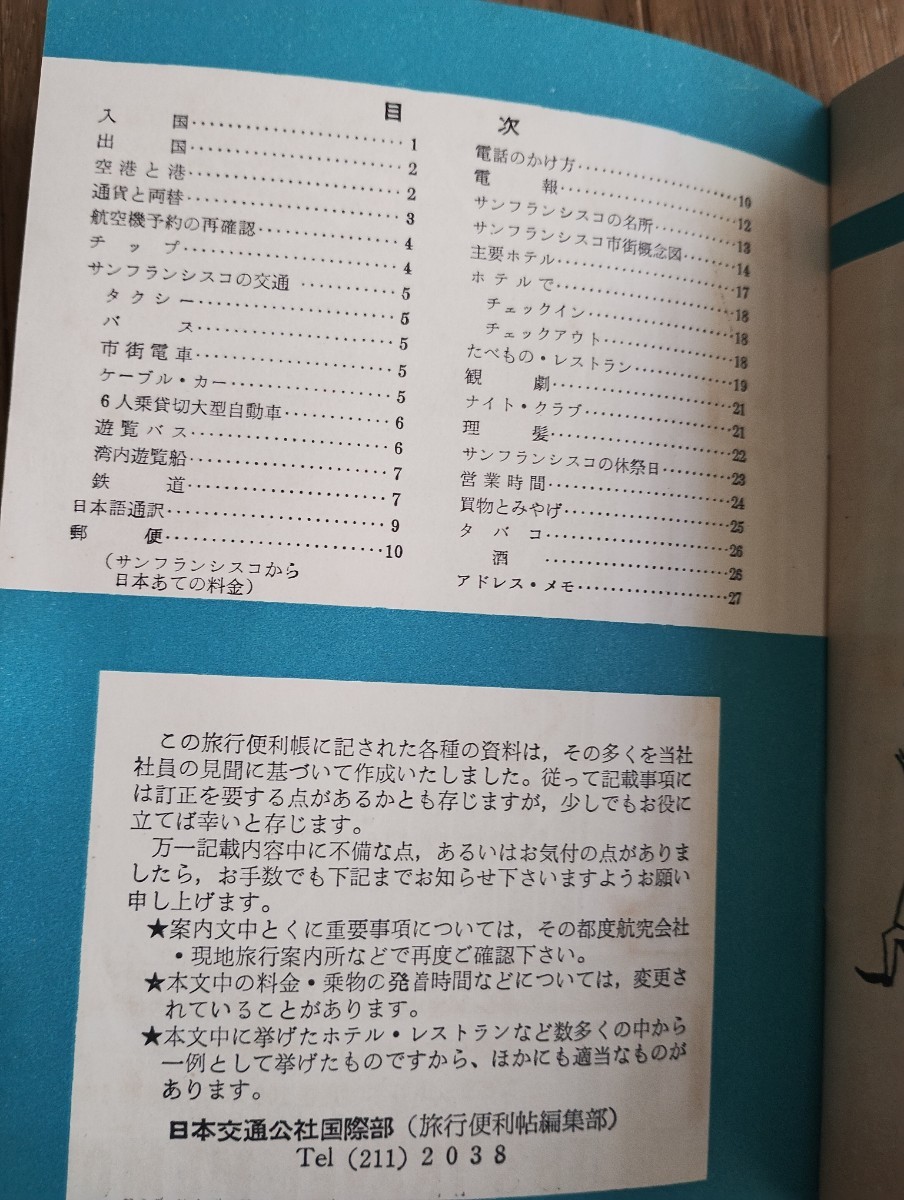 目次
入国 1
出国 2
空港と港 2
通貨と両替 3
航空機予約の再確認 4
チップ 4
サンフランシスコの交通 5
タクシー 5
バス 5
市街電車 5
ケーブル・カー 5
6人乗貸切大型自動車 6
遊覧バス 6
湾内遊覧船 7
鉄道 7
日本語通訳 9
郵便 10
(サンフランシスコから
日本あての料金)
電話のかけ方 10
電報 12
サンフランシスコの名所 13
サンフランシスコ市街概念図 14
主要ホテル 17
ホテルで 18
チェックイン 18
チェックアウト 18
たべもの・レストラン 19
観劇 21
ナイト・クラブ 21
理髪 22
サンフランシスコの休祭日 23
営業時間 24
買物とみやげ 25
タバコ 26
酒 26
アドレス・メモ 27
この旅行便利帳に記された各種の資料は，その多くを当社
社員の見聞に基づいて作成いたしました。従って記載事項に
は訂正を要する点があるかとも存じますが，少しでもお役に
立てば幸いと存じます。
万一記載内容中に不備な点，あるいはお気付の点がありま
したら，お手数でも下記までお知らせ下さいますようお願い
申し上げます。
★案内文中とくに重要事項については，その都度航究会社
・現地旅行案内所などで再度ご確認下さい。
★本文中の料金・乗物の発着時間などについては，変更さ
れていることがあります。
★本文中に挙げたホテル・レストランなど数多くの中から
一例として挙げたものですから、ほかにも適当なものが
あります。
日本交通公社国際部（旅行便利帖編集部）
Tel (211) 2038